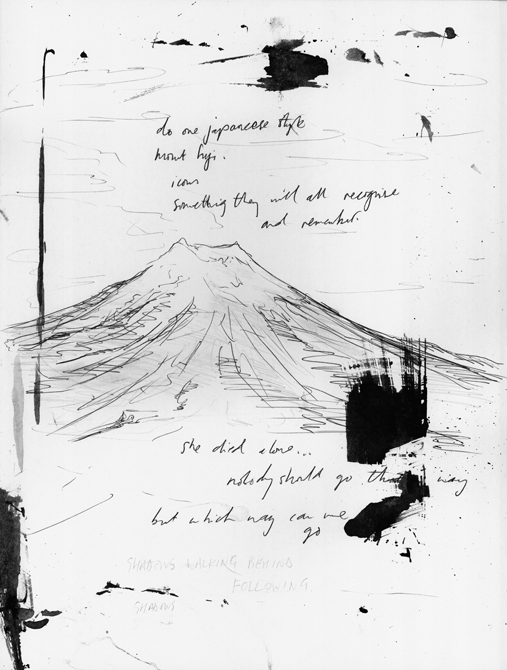 do one japanease style
mount fuji.
icons
something they will all recognise
and remember.
she died alone...
nobody should go that way
but which way can we
go
SHADOWS WALKING BEHIND
FOLLOWING.
SHADOWS